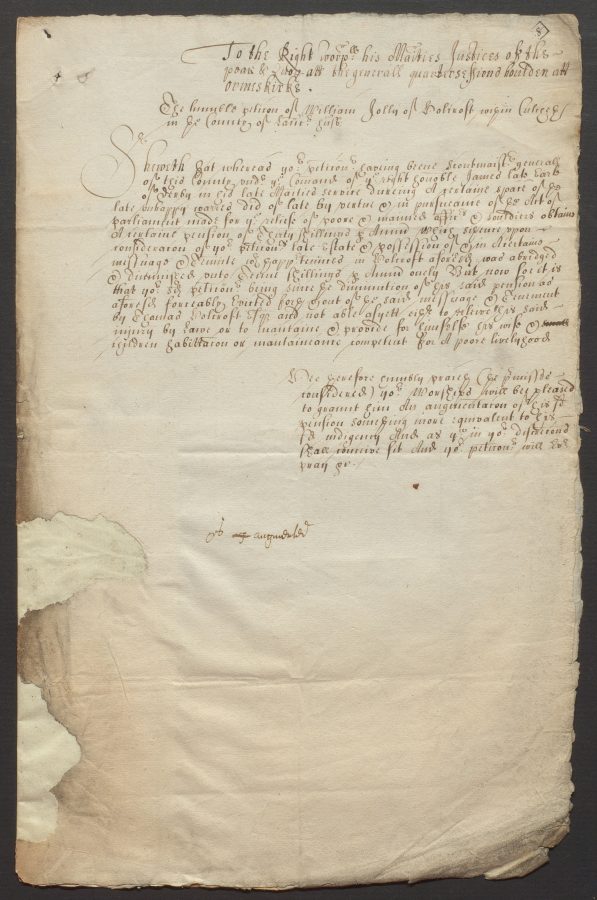 8
To the Right worpll his Maties Justices of the
peace & now att the generall quarter sessions houlden att
Ormeskirke.
The humble peticon of William Jolly of Holcroft within Culcheth
in the County of Lanc husb
Sheweth that whereas yor peticonr haveing beene Scoutmaistr generall
of this County undr ye Comand of ye right honoble James late Earle
of Derby in his late Maties service dureing A certaine space of the
late unhappy warres did of late by vertue & in pursueance of the Act of
parliament made for ye reliefe of poore & maimed officrs & souldiers obtaine
A certaine pension of Thirty shillings p Annu which sithence upon
consideracon of yor peticonrs late estate & possession of & in A certaine
messuage & tenemt wth appurtennces in Holcroft aforesd was abridged
& diminished unto Twenty shillings p Annu onely But now soe it is
that yor sd peticonr being since the diminution of his said pension as
aforesd forceably Evicted forth & out of the said messuage & Tenement
by Thomas Holcroft Esqr and not able as yett eithr to relieve his said
injury by Lawe or to maintaine & provide for himselfe his wife &
children habittacon or maintenance competent for A poore livelyhood
Hee therefore humbly prayeth (the premisses
considered) yor Worships will bee pleased
to graunt him An augmentacon of his sd
pension something more equivalent to his
sd indigency And as you in yor discrecons
shall conceive fit And yor peticonr will Ever
pray &c
augmented